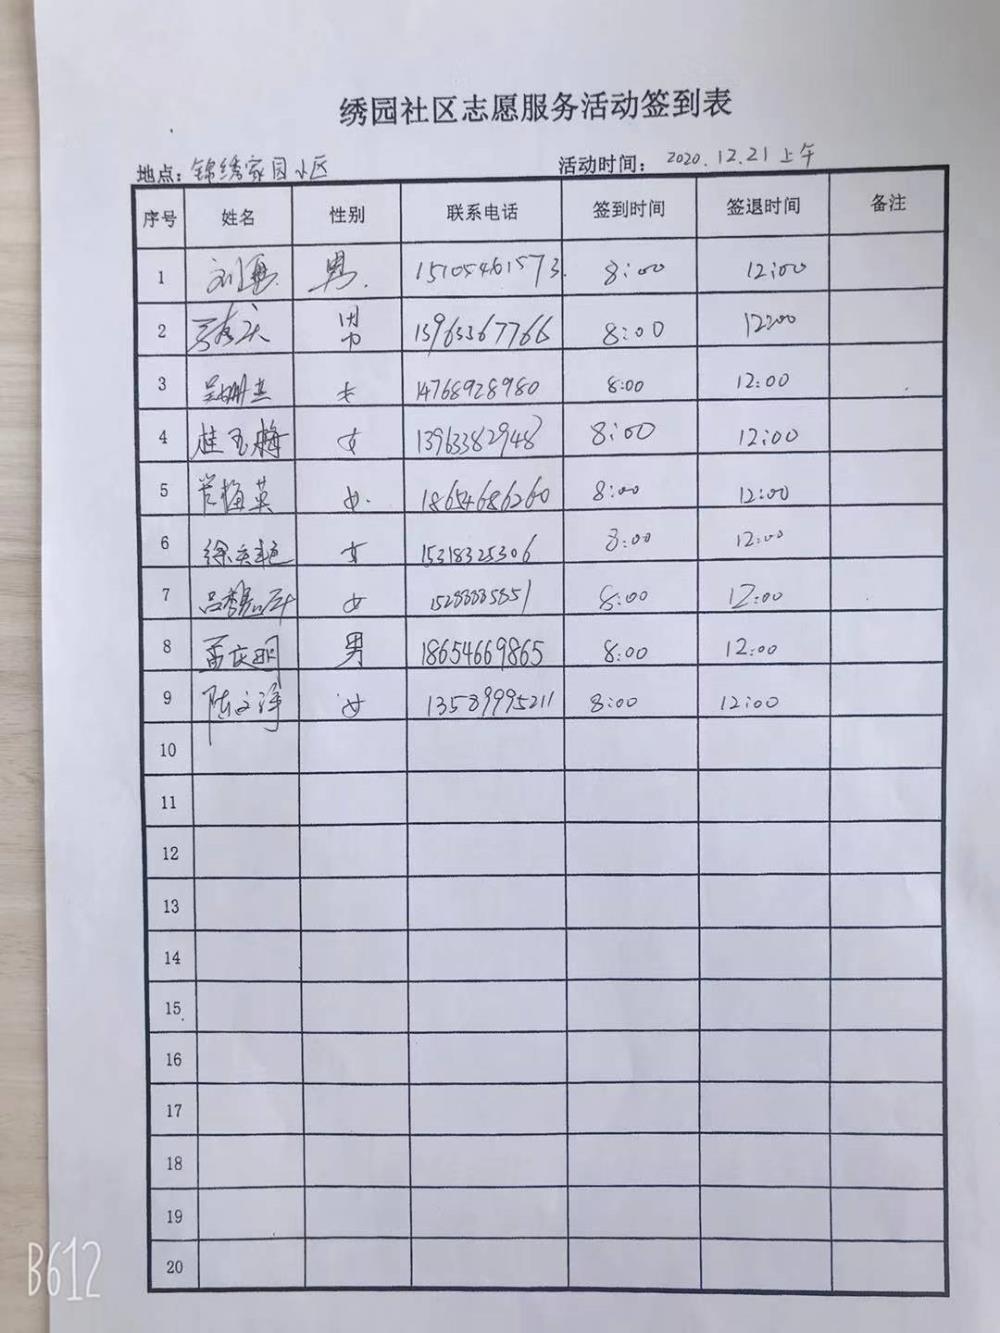 绣园社区志愿服务活动签到表
地点：锦绣家园小区 活动时间：2020.12.21上午
序号 姓名 性别 联系电话 签到时间 签退时间 备注
1 男 15105461573 8:00 12:00
2 男 13963367766 8:00 12:00
3 女 14768928980 8:00 12:00
4 桂玉梅 女 13963382948 8:00 12:00
5 梅英 女 18654686260 8:00 12:00
6 徐 女 15318325306 8:00 12:00
7 吕秀 女 8:00 12:00
8 孟庆明 男 18654669865 8:00 12:00
9 陈文 女 13589995211 8:00 12:00
10
11
12
13
14
15
16
17
18
19
20
B612